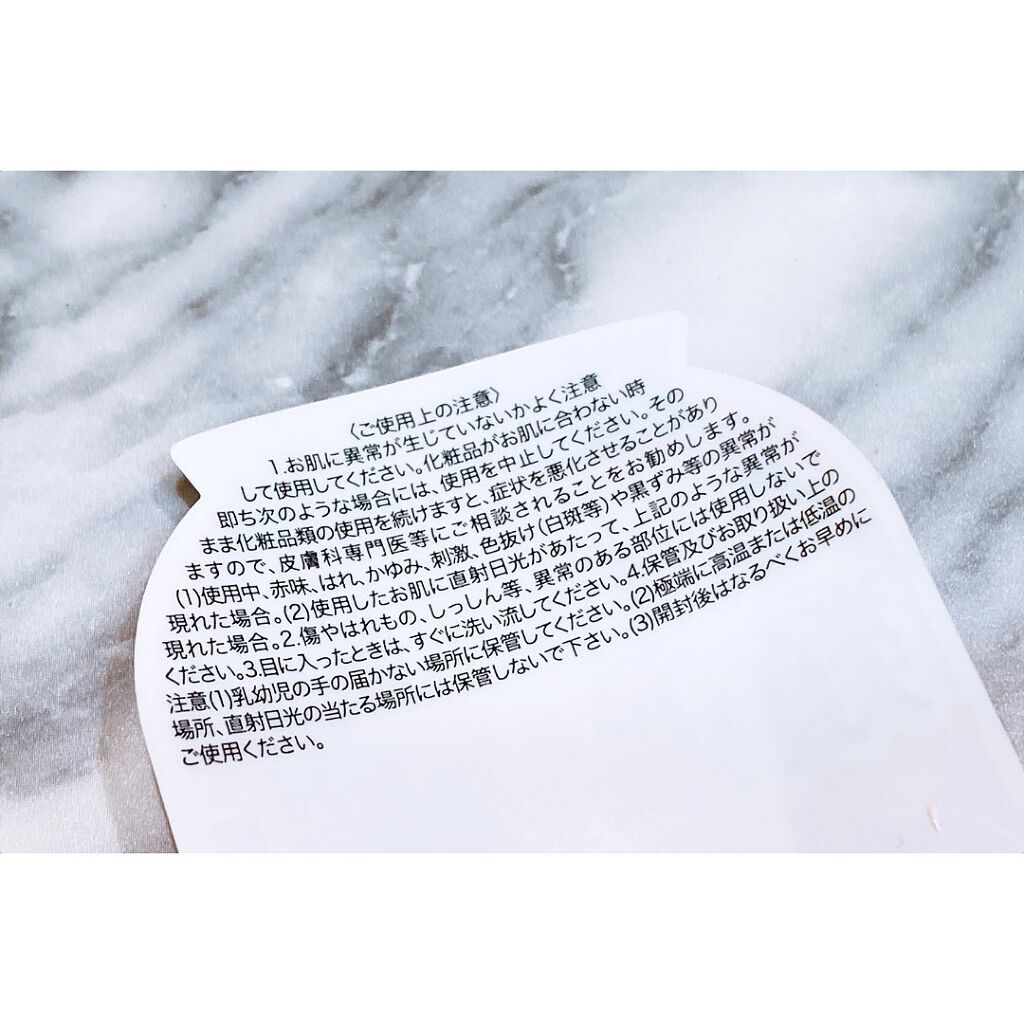 〈ご使用上の注意〉
1.お肌に異常が生じていないかよく注意
して使用してください。化粧品がお肌に合わない時
即ち次のような場合には、使用を中止してください。その
まま化粧品類の使用を続けますと、症状を悪化させることがあり
ますので、皮膚科専門医等にご相談されることをお勧めします。
(1)使用中、赤味、はれ、かゆみ、刺激、色抜け(白斑等)や黒ずみ等の異常が
現れた場合。(2)使用したお肌に直射日光があたって、上記のような異常が
現れた場合。2.傷やはれもの、しっしん等、異常のある部位には使用しないで
ください。3.目に入ったときは、すぐに洗い流してください。4.保管及びお取り扱い上の
注意(1)乳幼児の手の届かない場所に保管してください。(2)極端に高温または低温の
場所、直射日光の当たる場所には保管しないで下さい。(3)開封後はなるべくお早めに
ご使用ください。